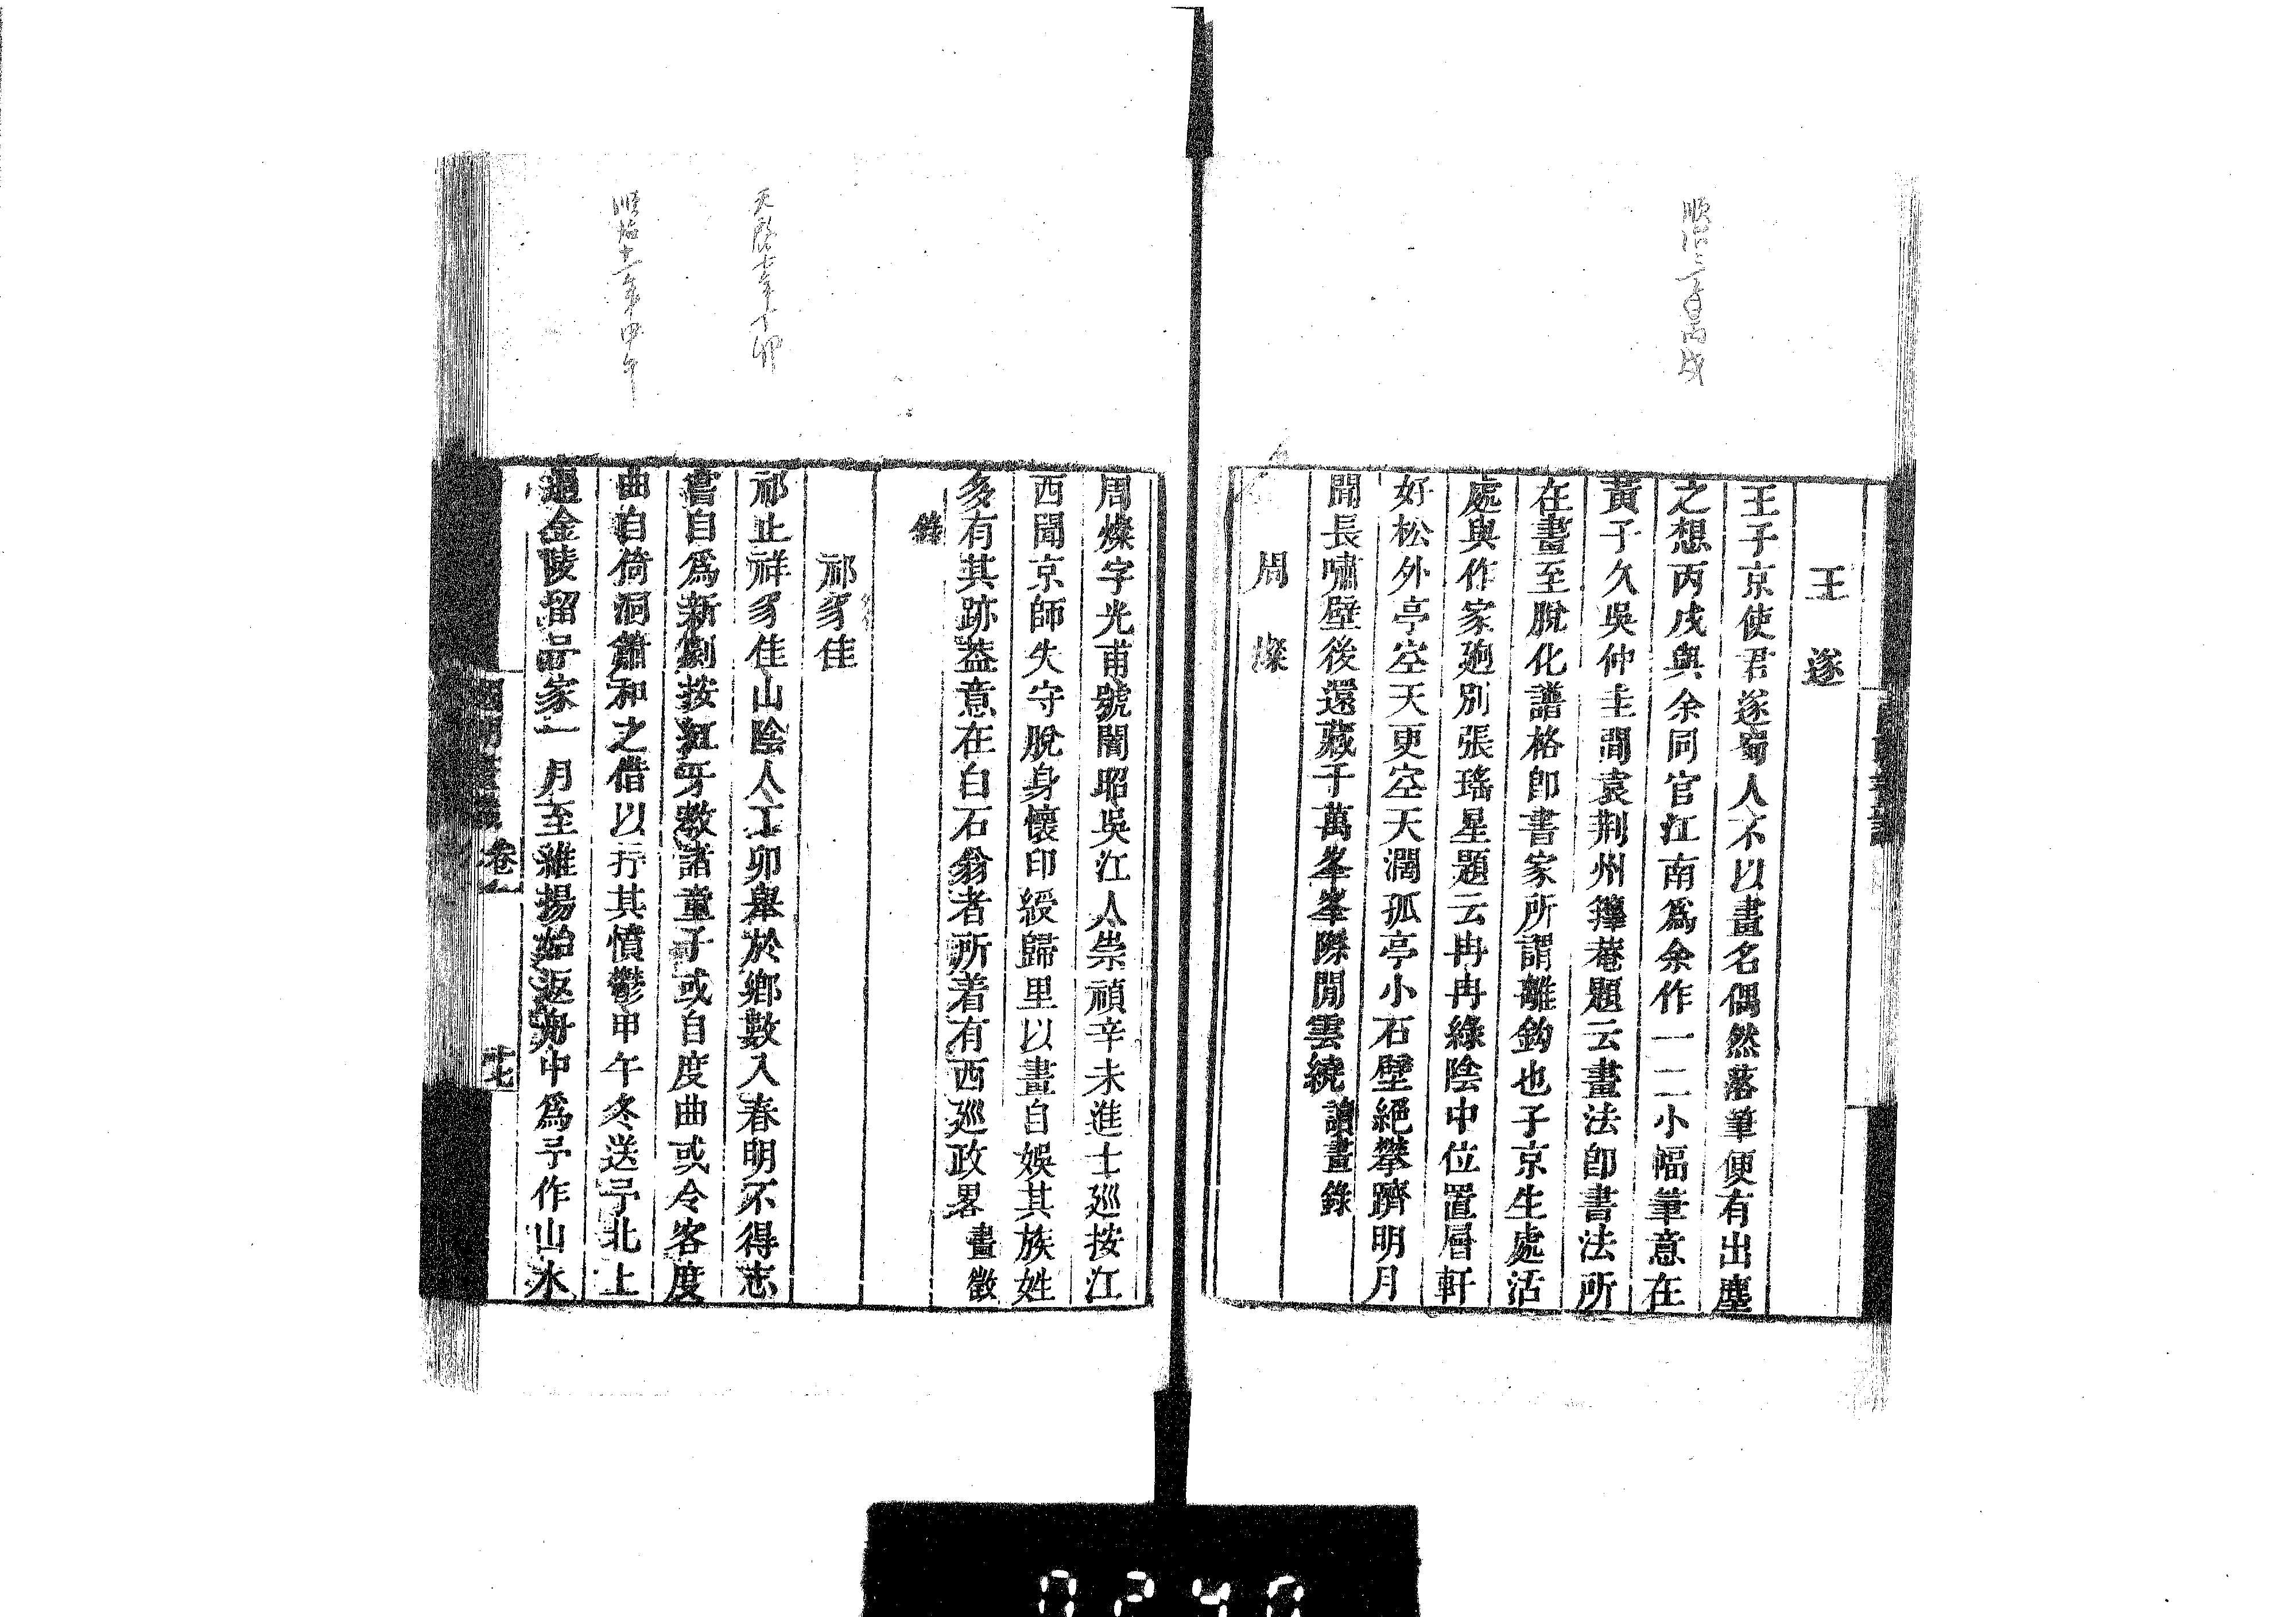 順治三年丙戌
王遂
王子京使君遂蜀人不以畫名偶然落筆便有出塵
之想丙戌與余同官江南爲余作一二小幅筆意在
黃子久吳仲圭間袁荆州籜菴題云畫法卽書法所
在畫至脫化譜格卽書家所謂離鈎也子京生處活
處與作家逈別張瑤星題云冉冉綠陰中位置層軒
好松外亭空天更空天濶孤亭小石壁絕攀躋明月
聞長嘯壁後還藏千萬峯峯際閒雲繞讀畫錄
周燦
周燦字光甫號闇昭吳江人崇禎辛未進士廵按江
西聞京師失守脫身懷印綬歸里以畫自娛其族姓
多有其跡葢意在白石翁者所着有西廵政畧畫徵
錄
天啟七年丁卯
祁豸佳
祁止祥豸佳山陰人丁卯舉於鄉數入春明不得志
嘗自爲新劇按紅牙教諸童子或自度曲或令客度
曲自倚洞簫和之借以抒其憤鬱甲午冬送予北上
順治十一年甲午
過金陵留予家一月至維揚始返舟中爲予作山水
卷一
十七
0240